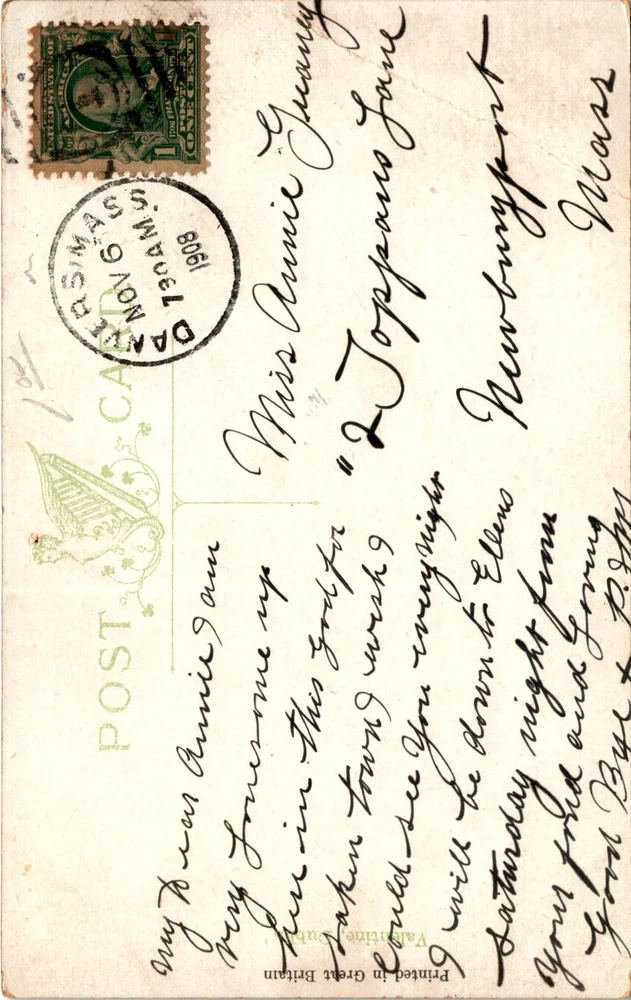 POST CARD
UNITED STATES OF AMERICA
1 ONE CENT
DANVERS, MASS.
NOV 6
730 AM
1908
My Dear Annie I am
very Lonesome up
here in this God for
saken town I wish I
Could see You every night
I will be down to Ellens
saturday night from
your fond and Loving
Good Bye +
Miss Annie
"2 Toppans Lane
Newburyport
Mass
Valentine, Dublin
Printed in Great Britain